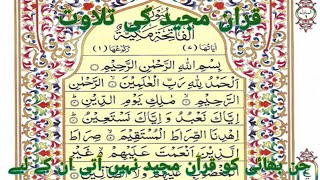 قرآن مجید کی تلاوت
الفاتحة مكية
بِسْمِ اللهِ الرَّحْمٰنِ الرَّحِيْمِ
اَلْحَمْدُ لِلّٰهِ رَبِّ الْعٰلَمِيْنَ الرَّحْمٰنِ
الرَّحِيْمِ مٰلِكِ يَوْمِ الدِّيْنِ
اِيَّاكَ نَعْبُدُ وَاِيَّاكَ نَسْتَعِيْنُ
اِهْدِنَا الصِّرَاطَ الْمُسْتَقِيْمَ صِرَاطَ
الَّذِيْنَ اَنْعَمْتَ عَلَيْهِمْ غَيْرِ
جن بھائی کو قرآن مجید نہیں آتی ان کے لیے